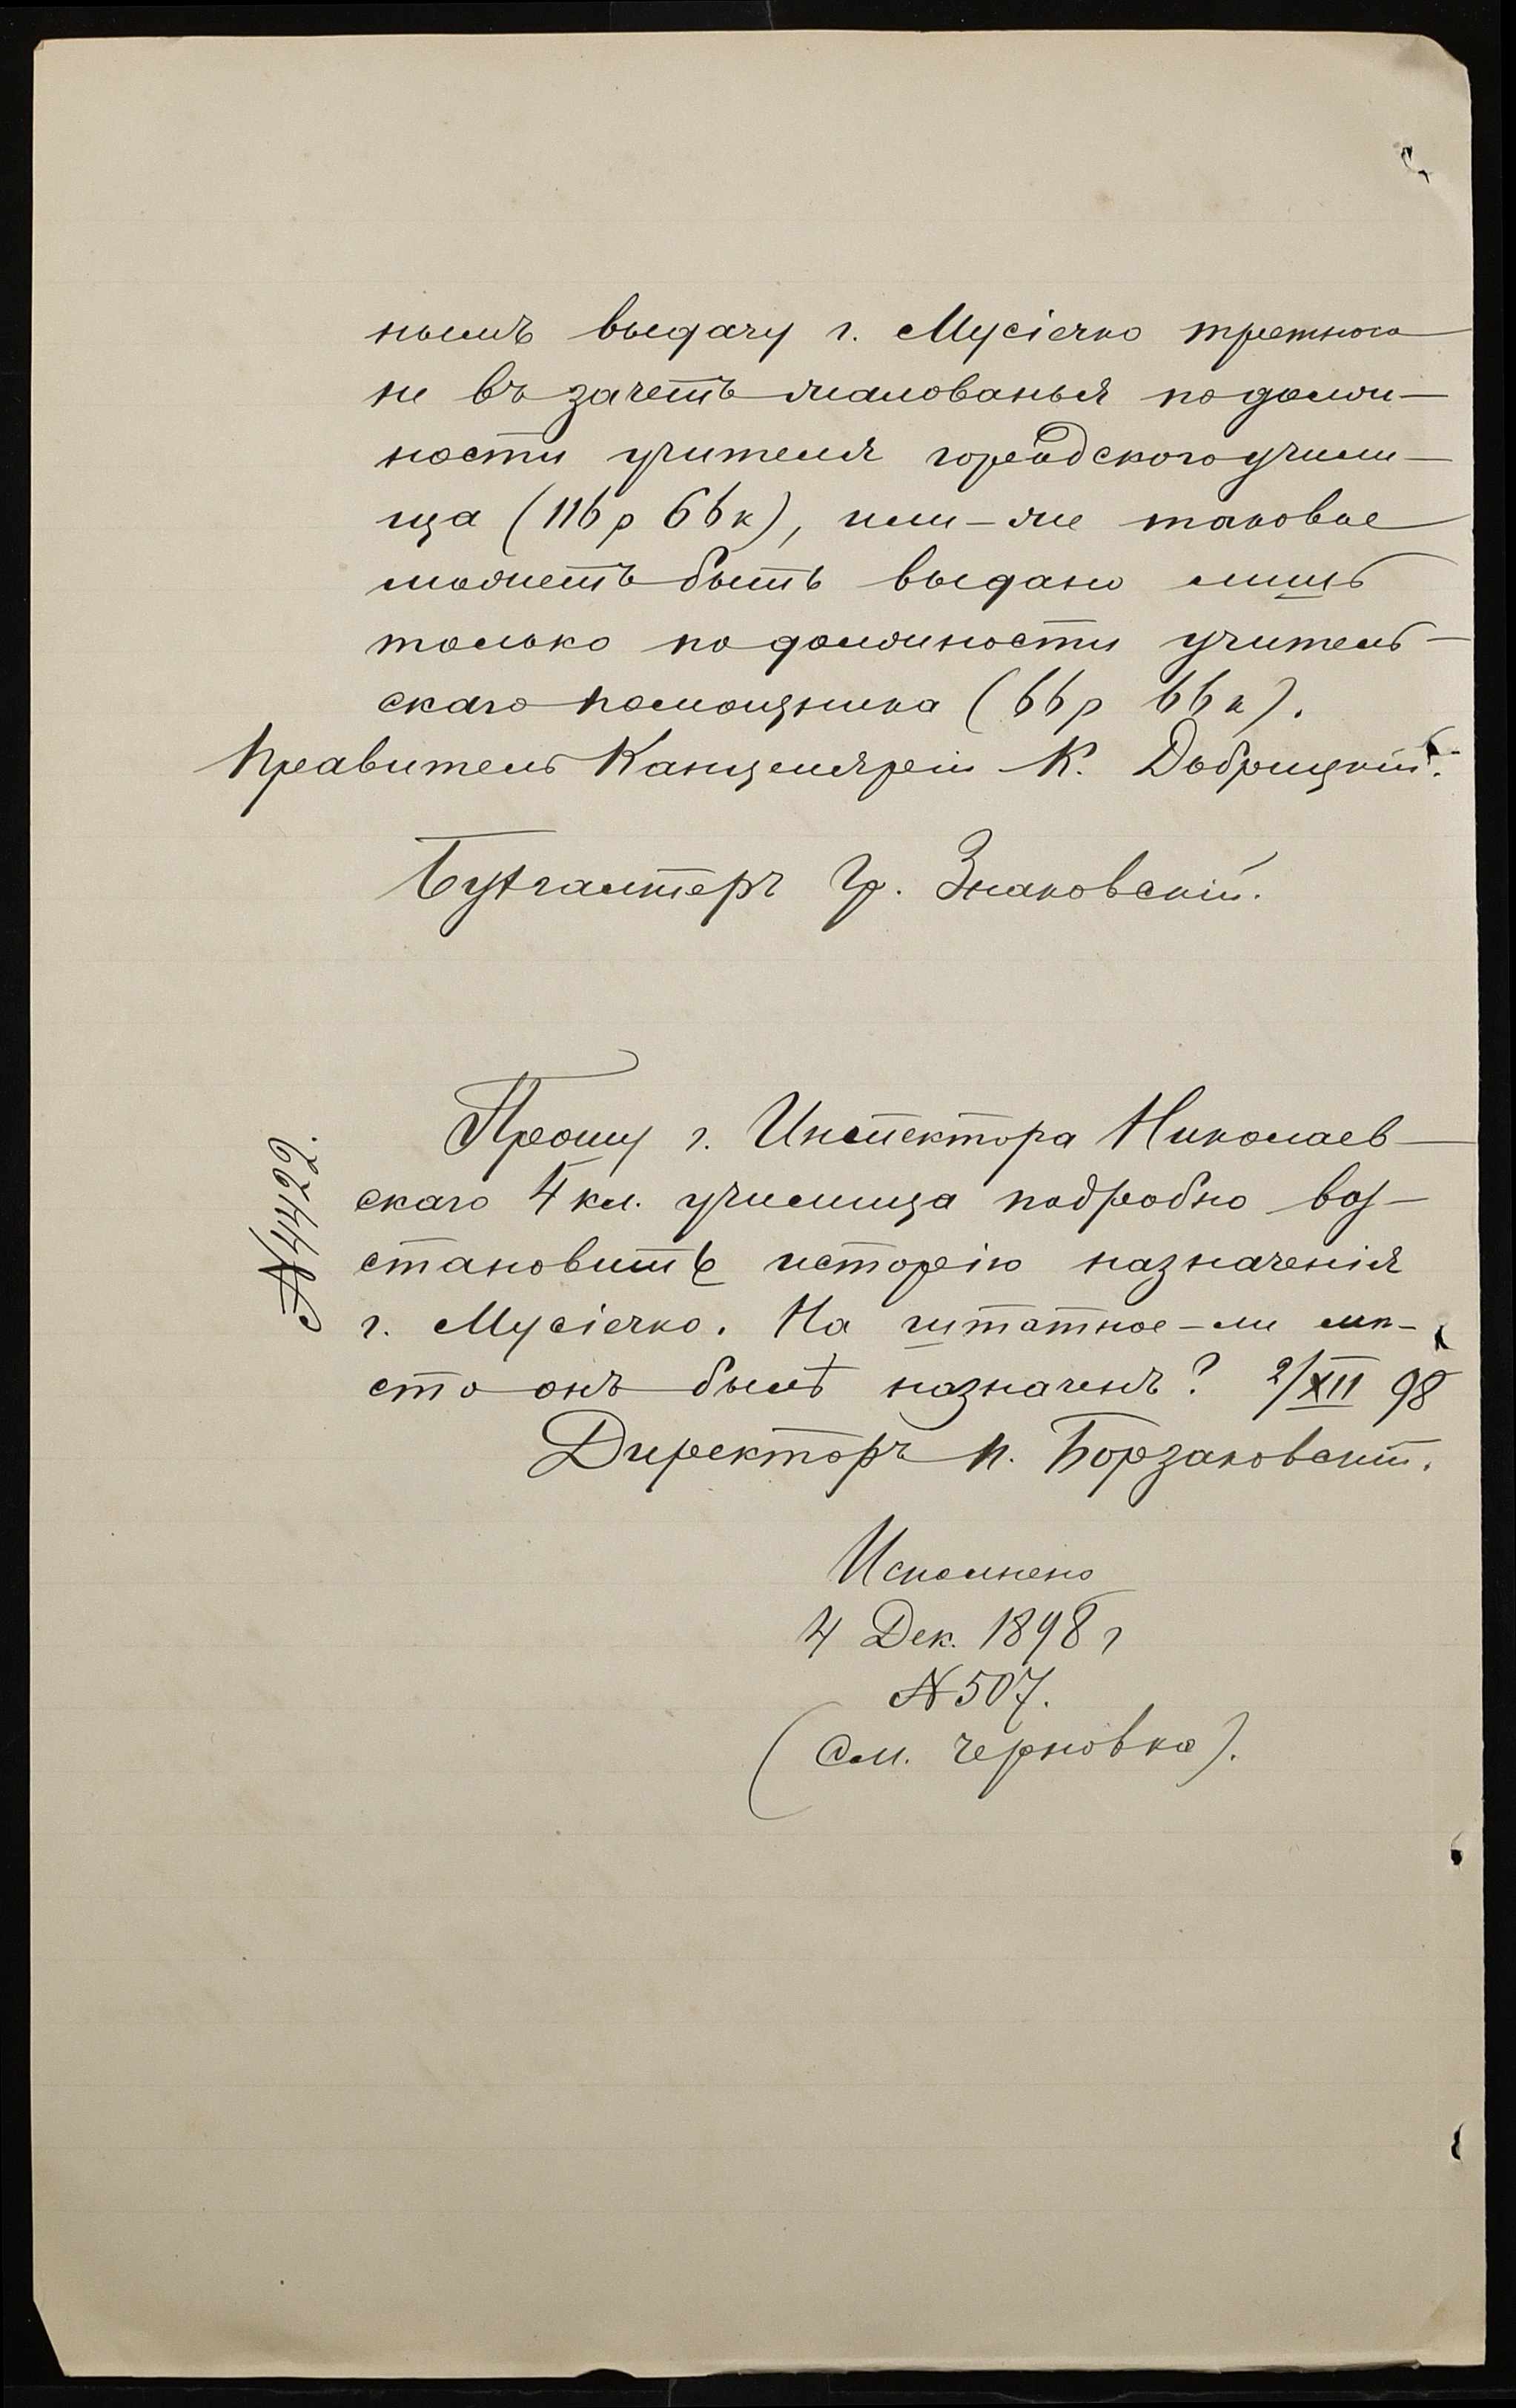 нымъ выдачу г. Мусіечко третного
не въ зачетъ жалованья по долж-
ности учителя городского учили-
ща (116 р 66 к), или-же таковое
можетъ быть выдано лишь
только по должности учитель-
скаго помощника (66 р 66 к).
Правитель Канцеляріи К. Добрицкій.
Бухгалтеръ Гр. Знаковскій.
Прошу г. Инспектора Николаев-
скаго 4 кл. училища подробно воз-
становить исторію назначенія
г. Мусіечко. На штатное-ли мѣ-
сто онъ былъ назначенъ? 2/XII 98
№ 4422.
Директоръ П. Борзаковскій.
Исполнено
4 Дек. 1898 г
№ 507.
(См. черновка).